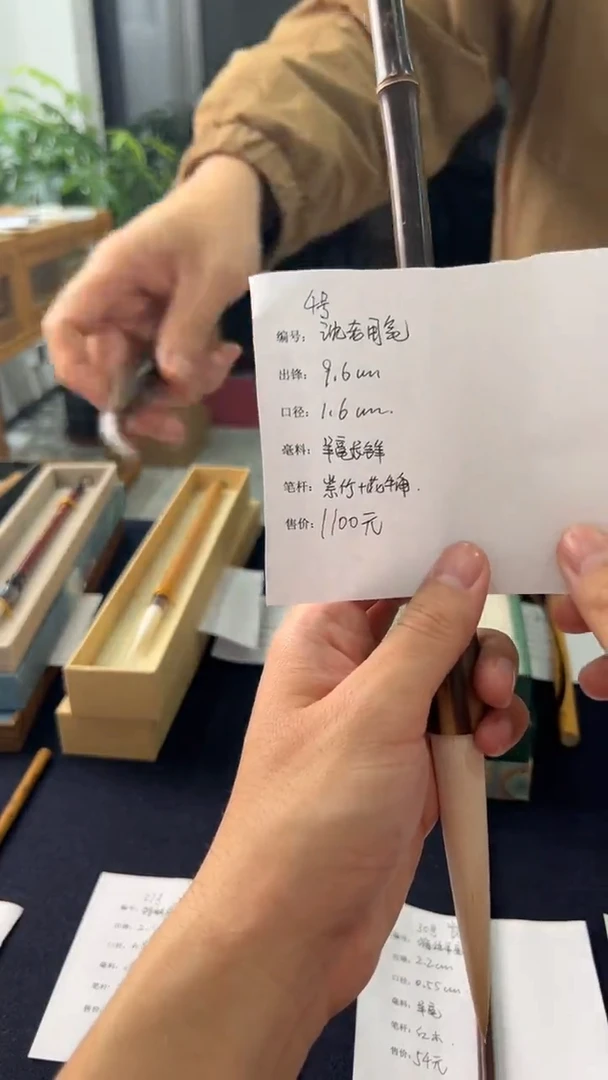 4号
编号: 沈右用笔
出锋: 9.6cm
口径: 1.6cm.
毫料: 羊毫长锋
笔杆: 紫竹+花牛角.
售价: 1100元
30号
编号:
出锋: 2.2cm
口径: 0.55cm
毫料: 羊毫
笔杆: 红木.
售价: 54元
编号:
出锋: 2.
口径:
毫料:
笔杆:
售价: